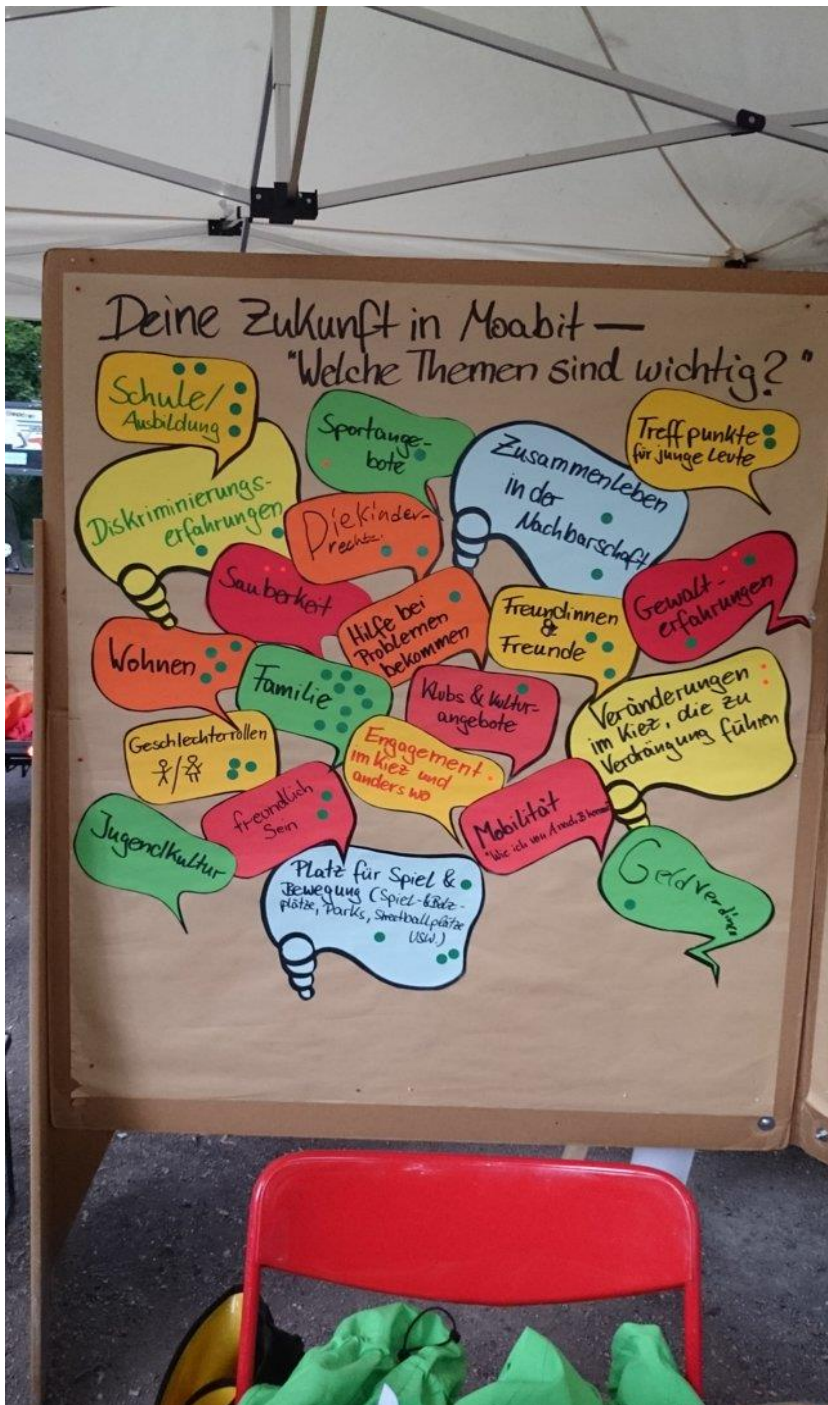 Deine Zukunft in Moabit —
"Welche Themen sind wichtig?"
Schule/
Ausbildung
Sportange-
bote
Treffpunkte
für junge Leute
Zusammenleben
in der
Nachbarschaft
Diskriminierungs-
erfahrungen
Die Kinder-
rechte
Sauberkeit
Hilfe bei
Problemen
bekommen
Freundinnen
&
Freunde
Gewalt-
erfahrungen
Wohnen
Familie
Klubs & Kultur-
angebote
Veränderungen
im Kiez, die zu
Verdrängung führen
Geschlechterrollen
/
Engagement
im Kiez und
anders wo
freundlich
Sein
Mobilität
"Wie ich von A nach B komme"
Jugendkultur
Platz für Spiel &
Bewegung (Spiel-&Bolz-
plätze, Parks, Streetballplätze
usw.)
Geldverdinen